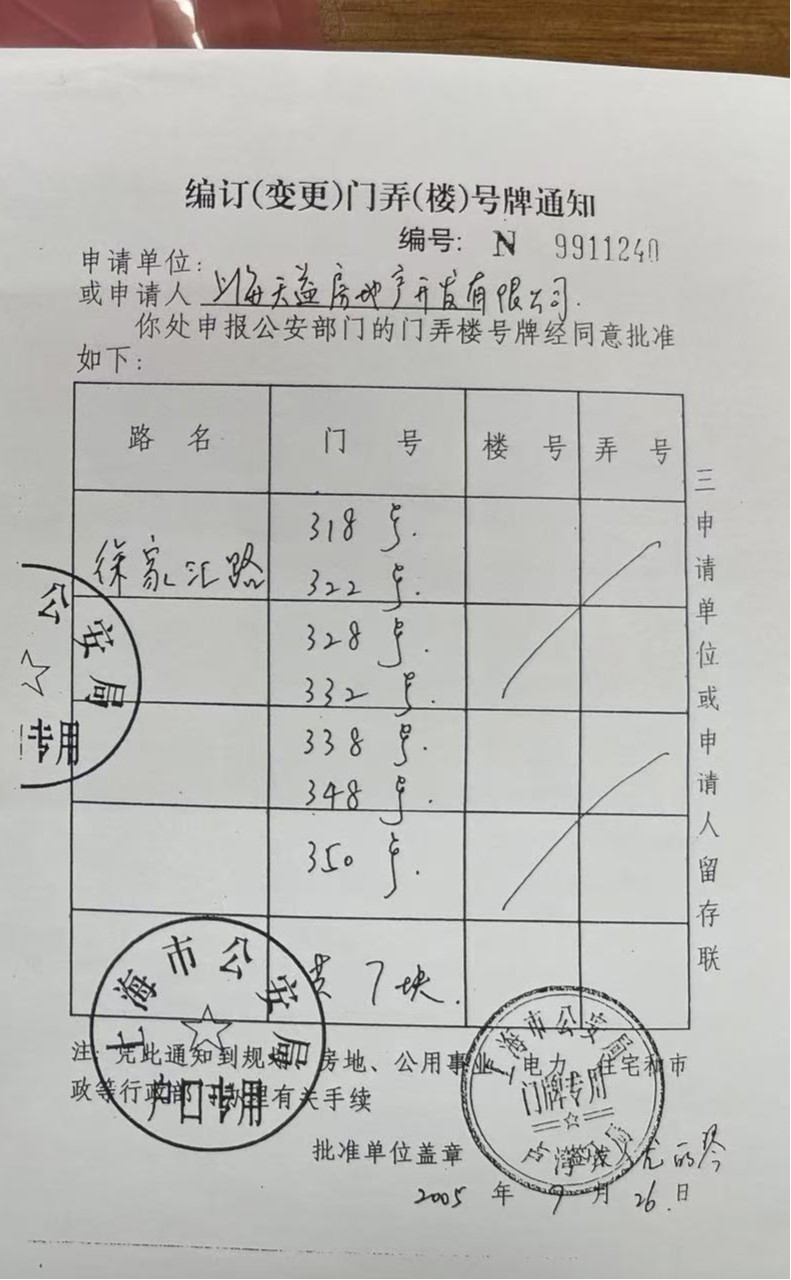 编订(变更)门弄(楼)号牌通知
编号: N 9911240
申请单位:
或申请人 上海天益房地产开发有限公司.
你处申报公安部门的门弄楼号牌经同意批准
如下:
路 名 门 号 楼 号 弄 号
318 号.
徐家汇路 322 号.
328 号.
332 号.
338 号.
348 号.
350 号.
共 7 块.
三申请单位或申请人留存联
公安局
专用
上海市公安局
户口专用
注: 凭此通知到规 房地、公用事业 电力 住宅和市
政等行政部 理有关手续
上海市公安局
门牌专用
批准单位盖章
2005 年 9 月 26 日